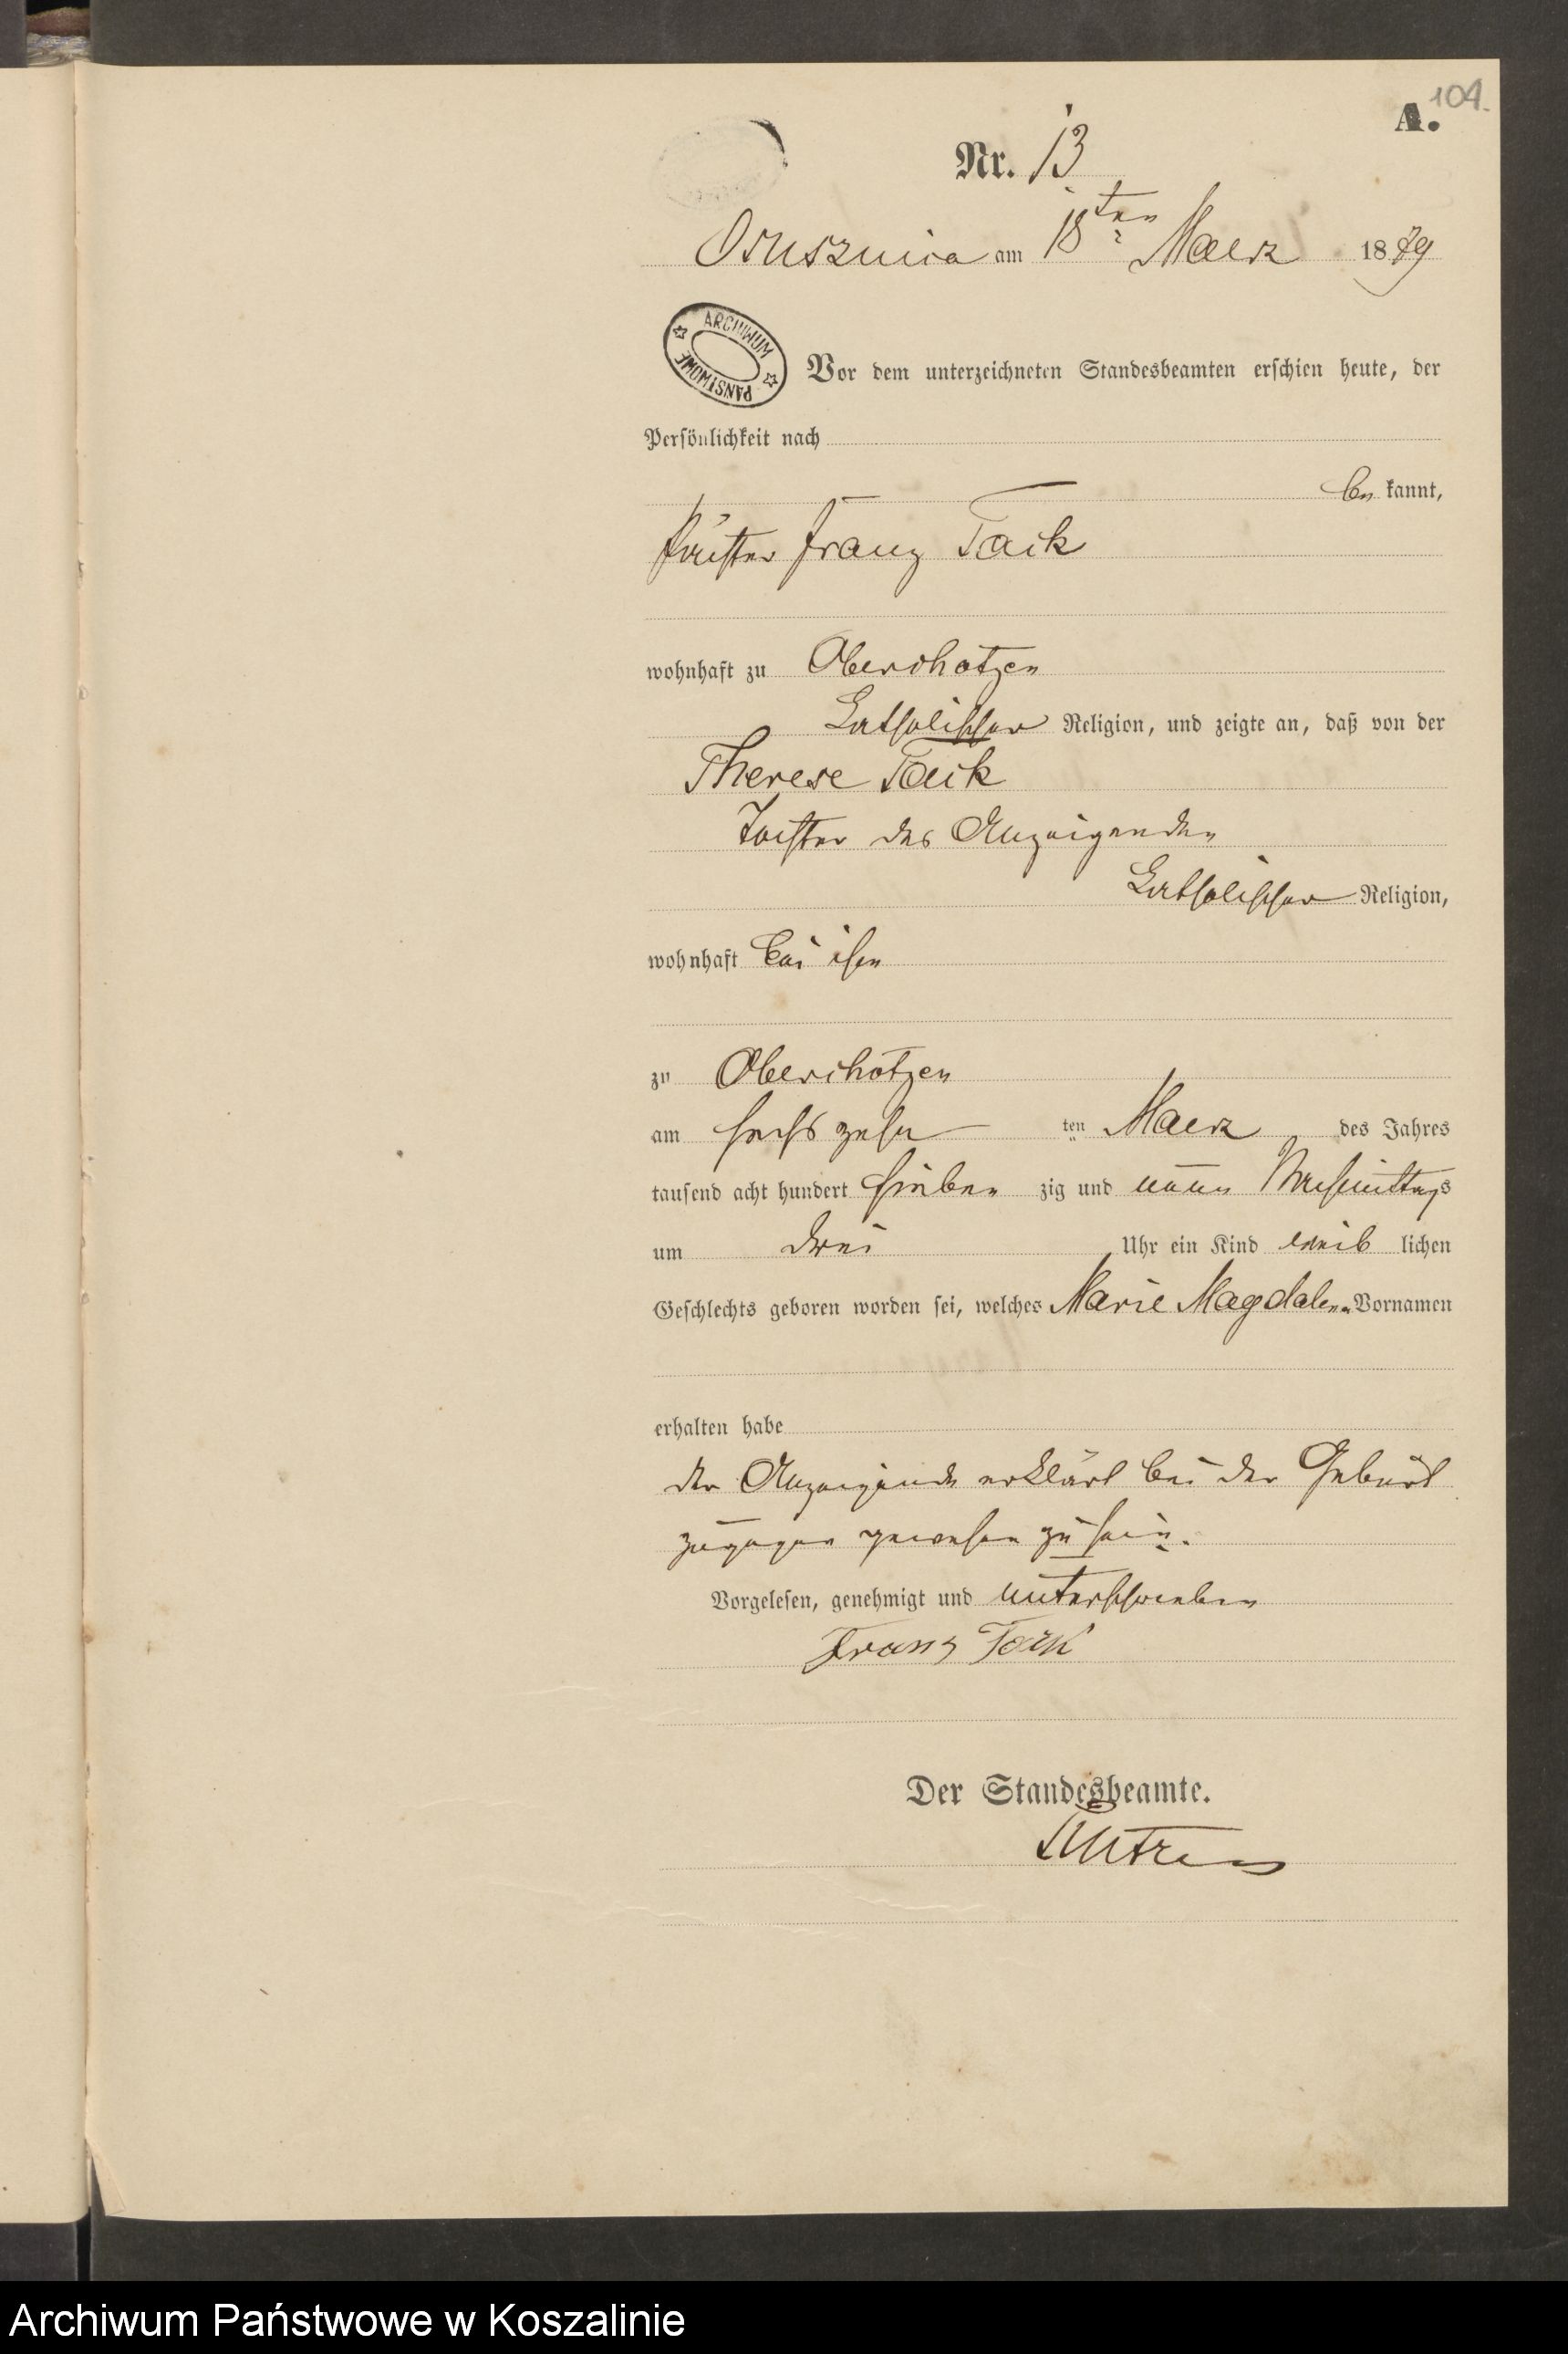 104.
A.
Nr. 13
Oslusznica am 18ten Maerz 1879
ARCHIWUM PAŃSTWOWE
Vor dem unterzeichneten Standesbeamten erschien heute, der
Persönlichkeit nach
be kannt,
Franz Taik
wohnhaft zu Oberchotzen
katholischer Religion, und zeigte an, daß von der
Therese Taik
Tochter des Anzeigenden
katholischer Religion,
wohnhaft bei ihm
zu Oberchotzen
am sechszehn ten Maerz des Jahres
tausend acht hundert sieben zig und neun Nachmittags
um drei Uhr ein Kind weib lichen
Geschlechts geboren worden sei, welches Marie Magdalena Vornamen
erhalten habe
der Anzeigende erklärt bei der Geburt
zugegen gewesen zu sein.
Vorgelesen, genehmigt und unterschrieben
Franz Taik
Der Standesbeamte.
Archiwum Państwowe w Koszalinie